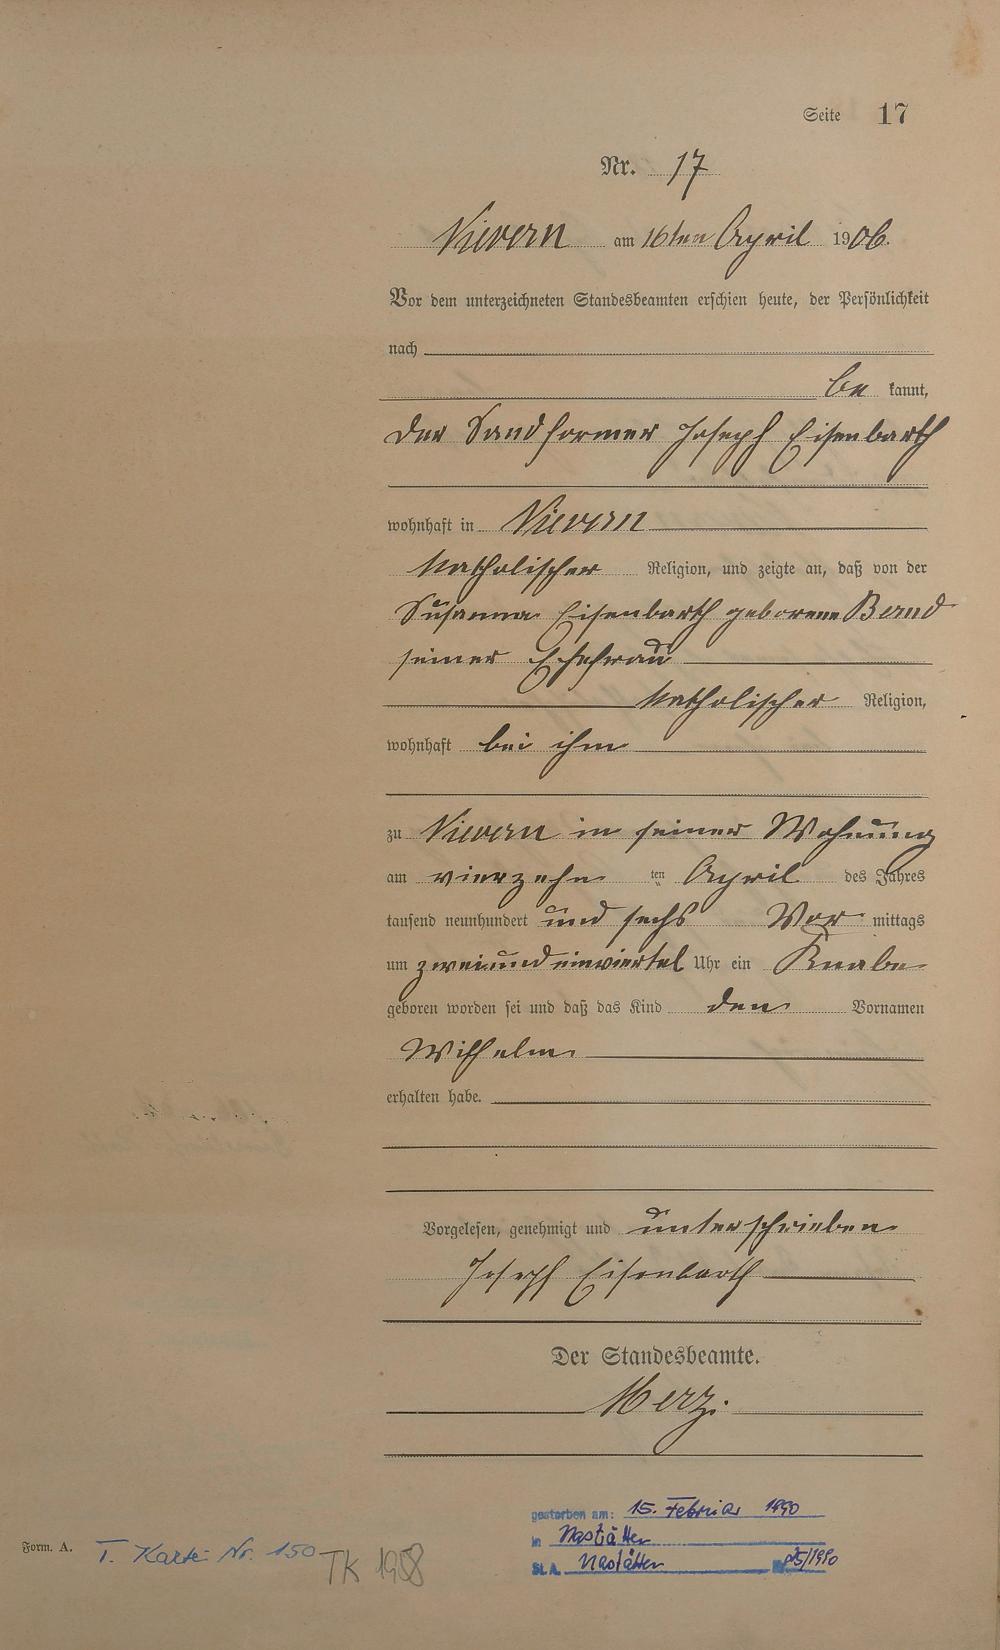 Seite 17
Nr. 17
Nievern am 16ten April 1906.
Vor dem unterzeichneten Standesbeamten erschien heute, der Persönlichkeit
nach
be kannt,
der Sandformer Joseph Eisenbarth
wohnhaft in Nievern
katholischer Religion, und zeigte an, daß von der
Susanna Eisenbarth geborene Bernd
seiner Ehefrau
katholischer Religion,
wohnhaft bei ihm
zu Nievern in seiner Wohnung
am vierzehn ten April des Jahres
tausend neunhundert und sechs Vor mittags
um zwei und einviertel Uhr ein Knabe
geboren worden sei und daß das Kind den Vornamen
Wilhelm
erhalten habe.
Vorgelesen, genehmigt und unterschrieben
Joseph Eisenbarth
Der Standesbeamte.
Merz.
gestorben am: 15. Februar 1990
in Nastätten
St. A. Nastätten
Form. A. T. Karte Nr. 150 TK